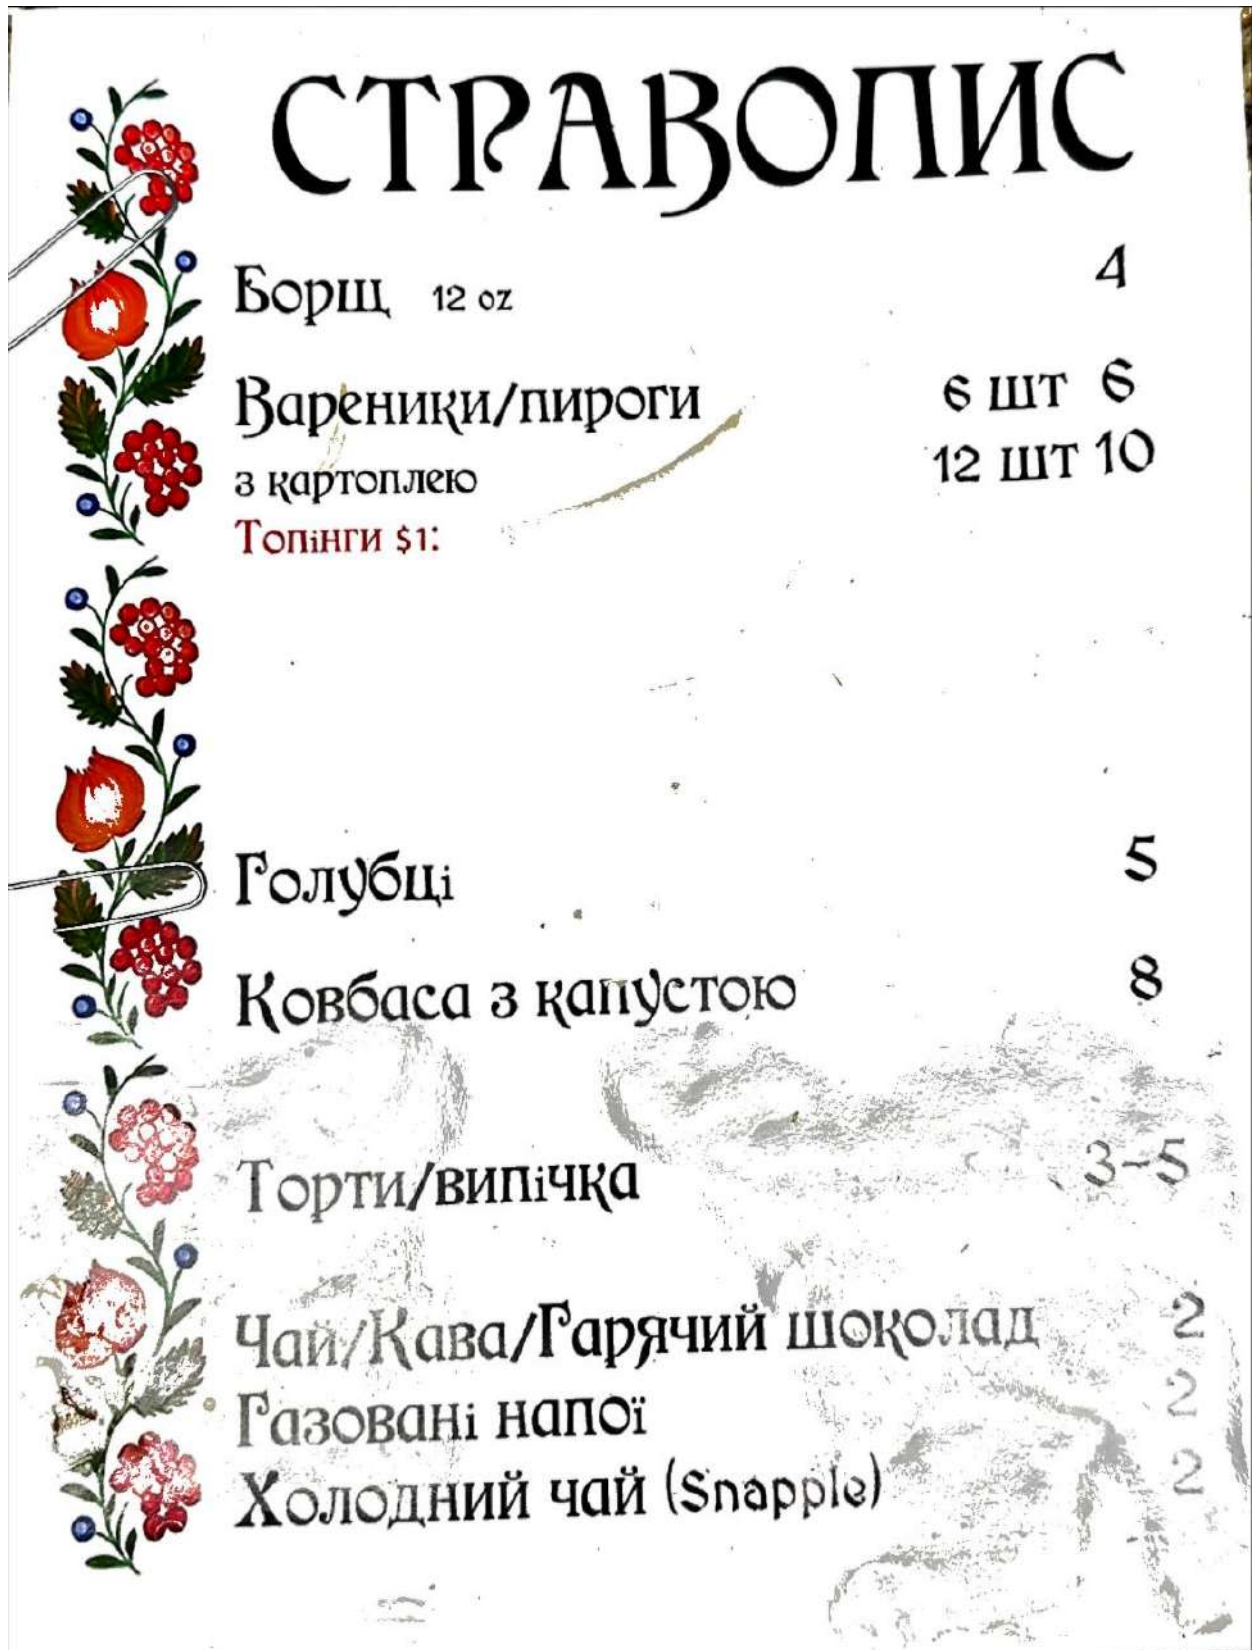 СТРАВОПИС
Борщ 12 oz 4
Вареники/пироги 6 шт 6
з картоплею 12 шт 10
Топінги $1:
Голубці 5
Ковбаса з капустою 8
Торти/випічка 3-5
Чай/Кава/Гарячий шоколад 2
Газовані напої 2
Холодний чай (Snapple) 2